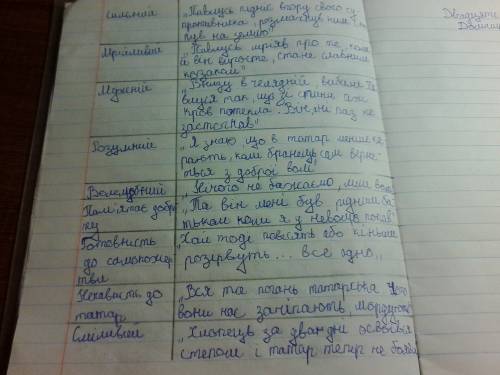 Сильний „Павлусь підніс вгору свого су
противника, розмахнув ним
нув на землю"
Мрійливий „Павлусь мріяв про те, коли
й він виросте, стане славним
козаком"
Мужній „Внизу в челядній,
вшися так, що зі спини аж
кров потекла. Він ні раз не
застогнав"
Розумний „Я знаю що в татар менше ка
рають, коли бранець сам верне
ться з доброї волі"
Волелюбний „Нічого не бажаємо, лиш волі
Пам'ятає добро „Та він мені був рідним ба
ту тьком коли я у неволю попав"
Готовність „Хай тоді повісять або кіньми
до самопожер розірвуть... все одно„
тви
Ненависть до „Вся та погань татарська
татар вони нас зачіпають, мордують
Сміливий „Хлопець за два дні освоївся
степом і татар тепер не боявся
Двадцять